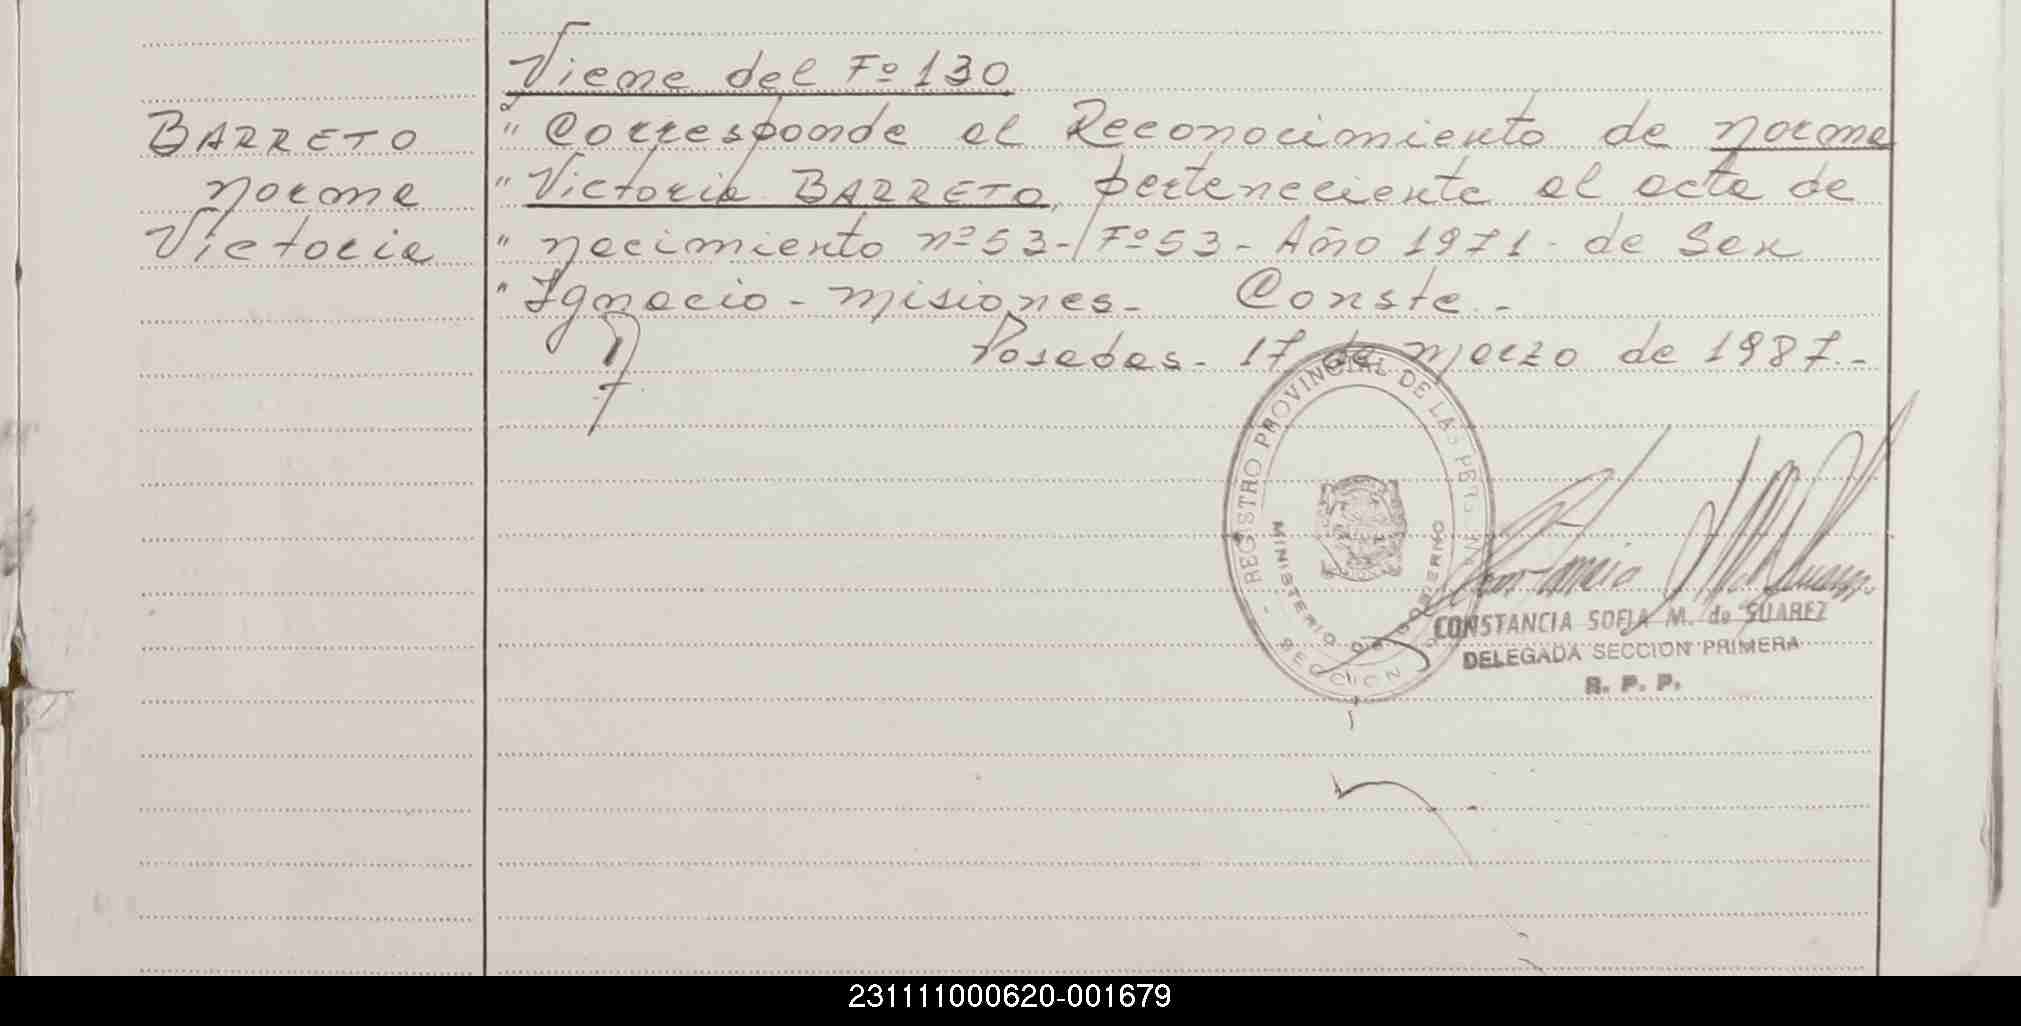 Viene del Fº 130
BARRETO
Norma
Victoria
" Corresponde al Reconocimiento de Norma
" Victoria BARRETO, perteneciente al acta de
" nacimiento nº 53 - Fº 53 - Año 1971 - de San
" Ignacio - Misiones - Conste. -
Posadas - 17 de Marzo de 1987. -
REGISTRO PROVINCIAL DE LAS PERSONAS
MINISTERIO DE GOBIERNO
SECCION
CONSTANCIA SOFIA M. de SUAREZ
DELEGADA SECCION PRIMERA
R. P. P.
231111000620-001679